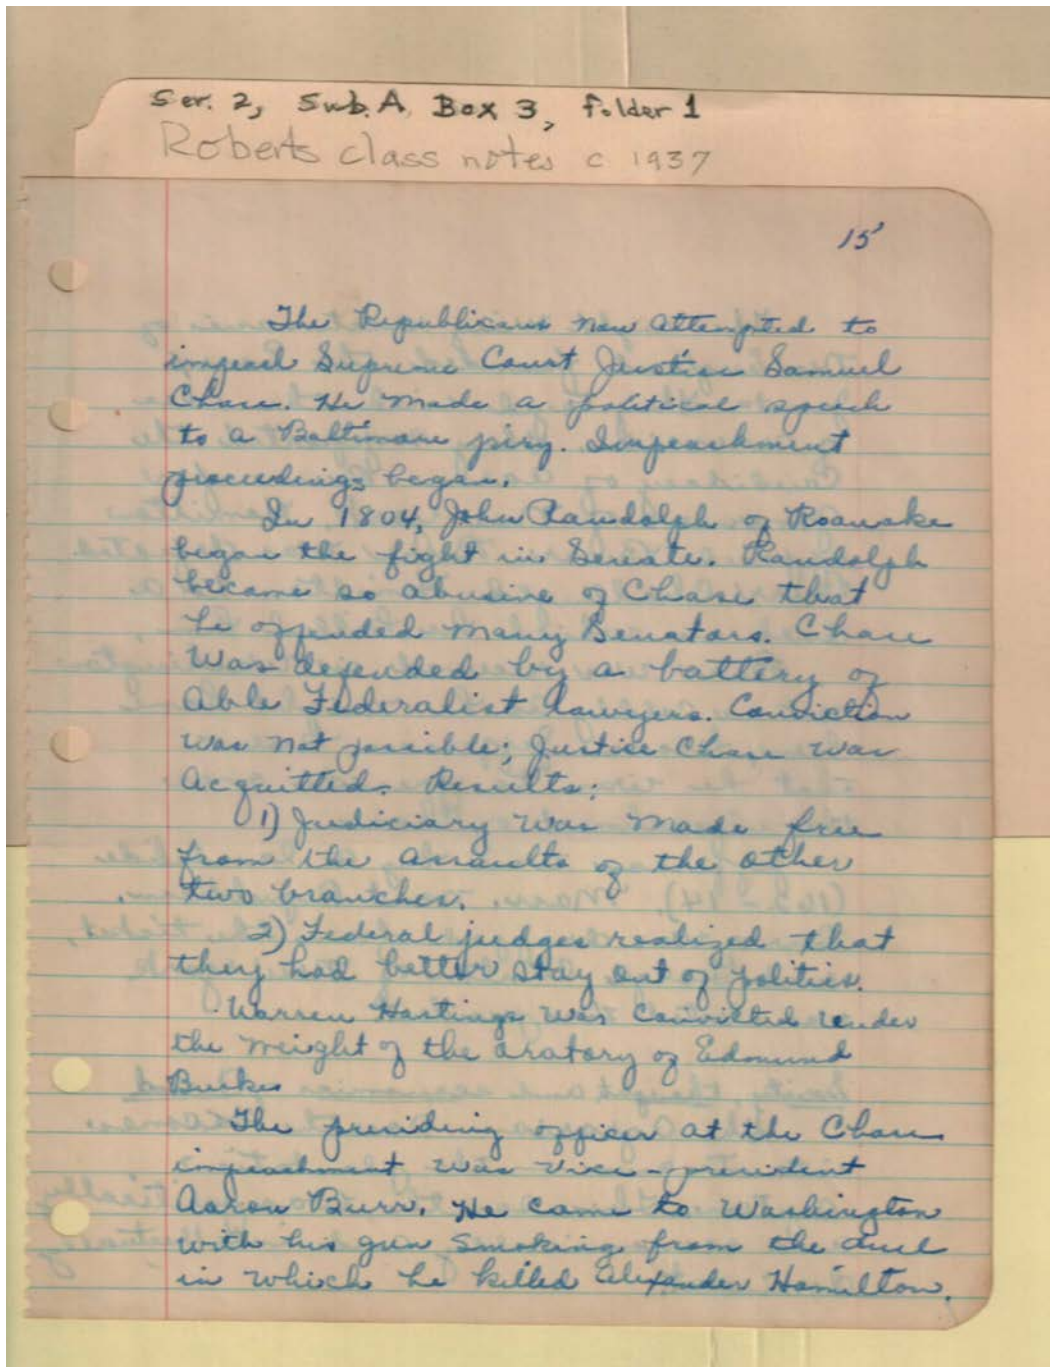 Ser. 2, Sub. A, Box 3, folder 1
Roberts class notes c 1937
15
The Republicans now attempted to
impeach Supreme Court Justice Samuel
Chase. He made a political speech
to a Baltimore jury. Impeachment
proceedings began.
In 1804, John Randolph of Roanoke
began the fight in Senate. Randolph
became so abusive of Chase that
he offended many Senators. Chase
was defended by a battery of
able Federalist lawyers. Conviction
was not possible; Justice Chase was
acquitted. Results:
1) Judiciary was made free
from the assaults of the other
two branches.
2) Federal judges realized that
they had better stay out of politics.
Warren Hastings was convicted under
the weight of the oratory of Edmund
Burke
The presiding officer at the Chase
impeachment was Vice-president
Aaron Burr. He came to Washington
with his gun smoking from the duel
in which he killed Alexander Hamilton.